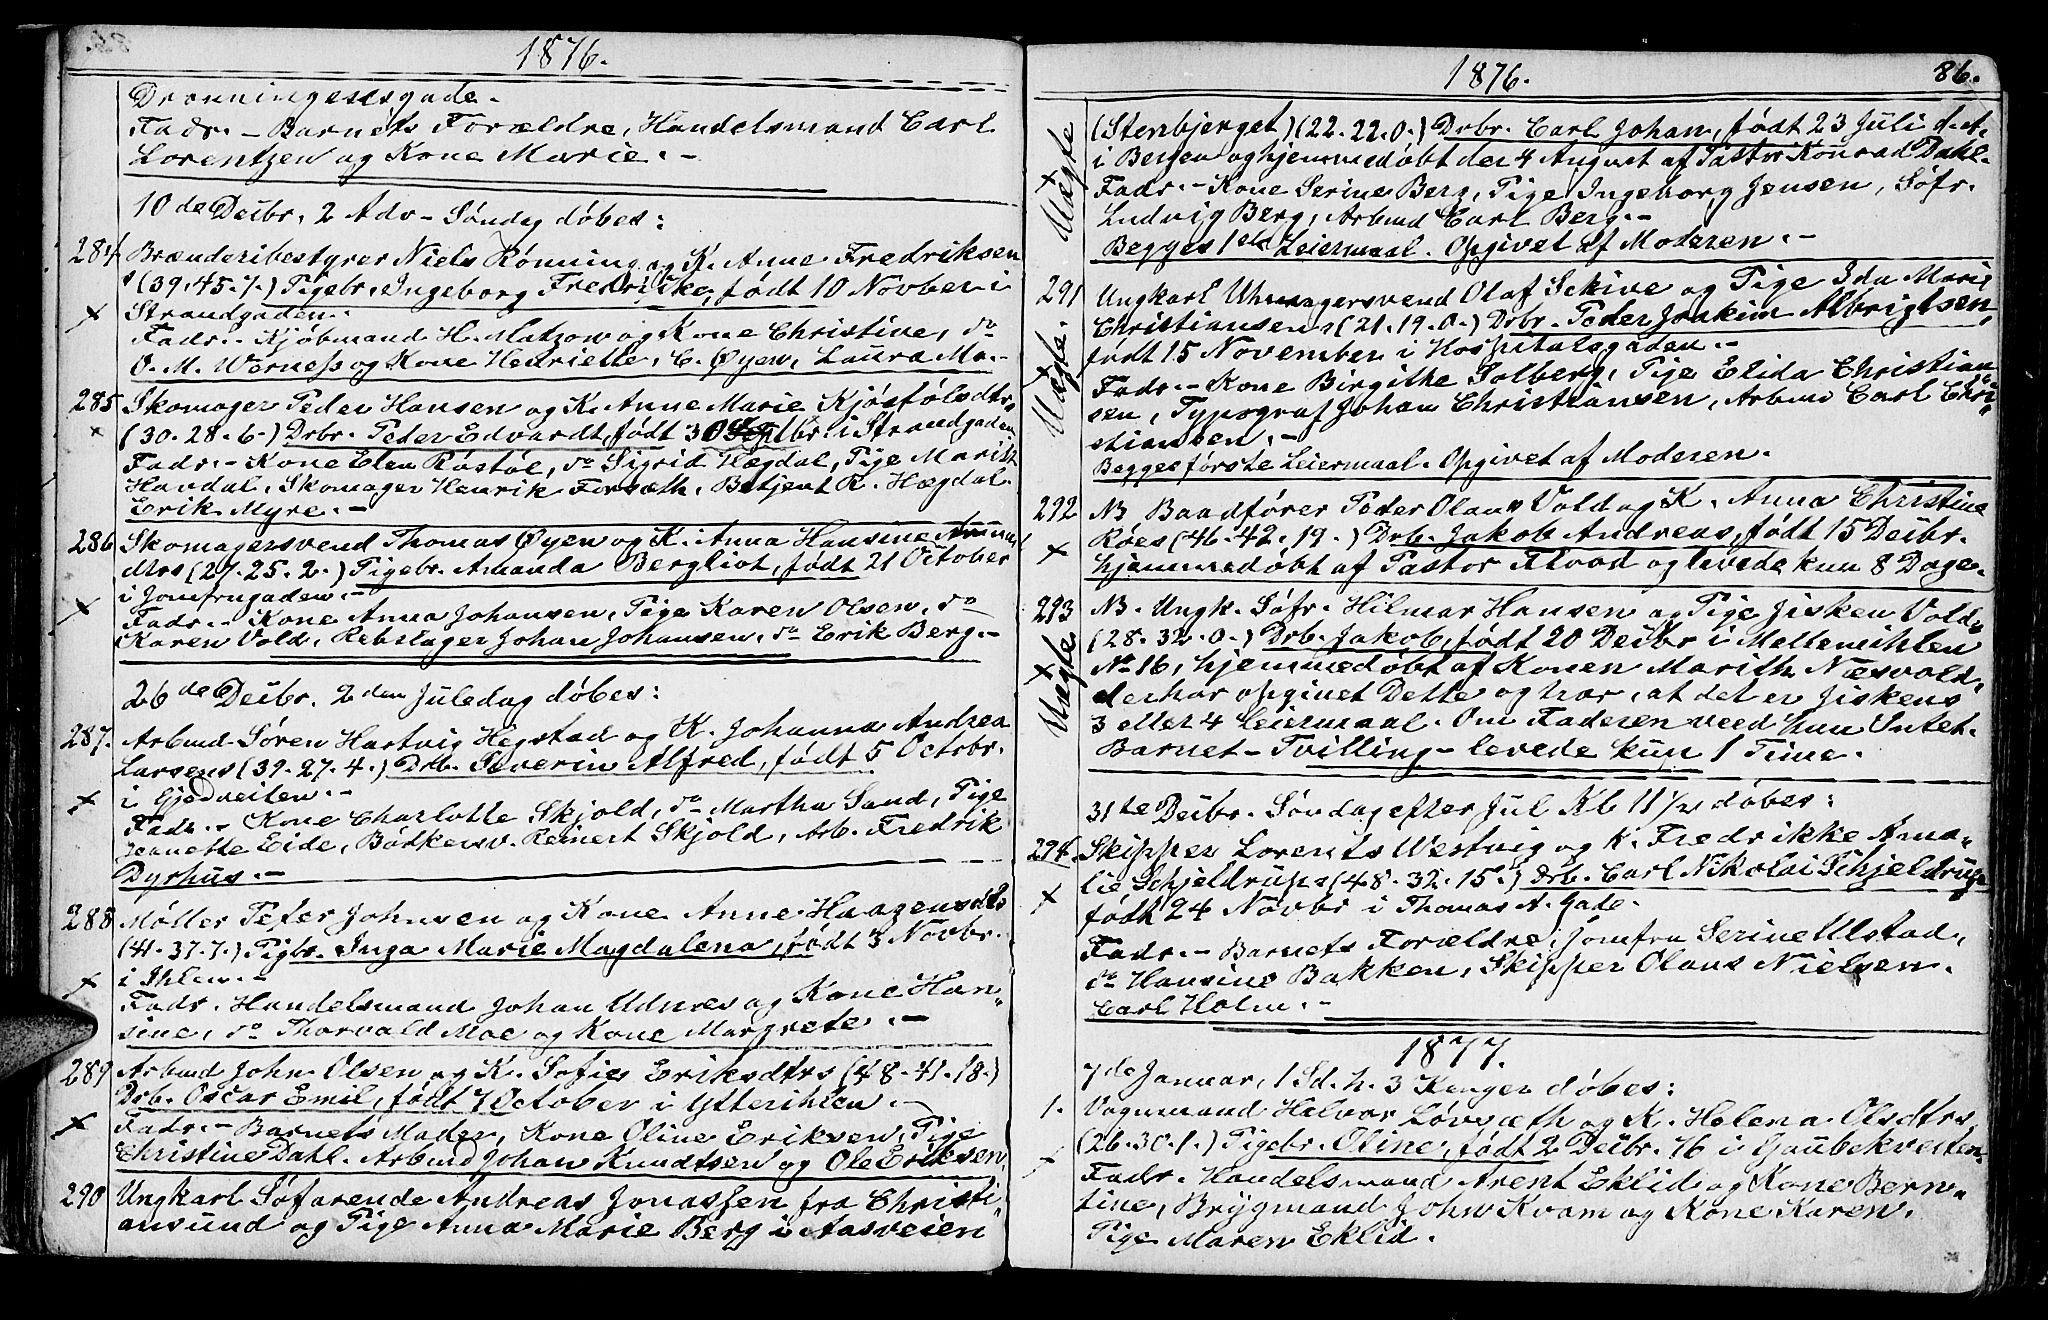 1876.
Dronningensgade.
Fadr. - Barnets Forældre, Handelsmand Carl
Lorentzen og Kone Marie. -
10de Decbr. 2 Adv - Söndag döbes:
284 Brænderibestyrer Niels Rönning og K. Anne Fredriksen
s (39.45.7.) Pigebr. Ingeborg Fredrikke, födt 10 Novber i
Strandgaden.
Fadr. - Kjöbmand H. Matzow og Kone Christine, do
O. M. Werness og Kone Henriette, C. Öyen, Laura Mo. -
285 Skomager Peder Hansen og K. Anne Marie Kjösfölsdtr.
(30.28.6.) Drbr. Peder Edvardt, födt 30 Septbr. i Strandgaden
Fadr. - Kone Elen Röstöl, do Sigrid Hægdal, Pige Marith
Havdal, Skomager Henrik Forsæth, Betjent R. Hægdal.
Erik Myre. -
286 Skomagersvend Thomas Öyen og K. Anna Hansine
dtrs (27.25.2.) Pigebr. Amanda Bergliot, födt 21 October
i Jomfrugaden. -
Fadr. - Kone Anna Johansen, Pige Karen Olsen, do
Karen Vold, Rebslager Johan Johansen, do Erik Berg. -
26de Decbr. 2den Juledag döbes:
287. Arbmd Sören Hartvig Hegstad og K. Johanna Andrea
Larsens (39.27.4.) Drb. Severin Alfred, födt 5 Octobr.
i Gjedveiten. -
Fadr. - Kone Charlotte Skjold, do Martha Sand, Pige
Jeanette Eide, Bödkersv. Reinert Skjold, Arb. Fredrik
Dyrhus. -
288 Möller Peter Johnsen og Kone Anne Haagensdtr
(41.37.7.) Pigbr. Inga Marie Magdalena, födt 3 Novbr.
i Ihlen. -
Fadr. Handelsmand Johan Udnes og Kone Han-
sine, do Thorvald Moe og Kone Margrete. -
289 Arbmd John Olsen og K. Sofie Eriksdtrs (48.41.18.)
Drb. Oscar Emil, födt 7 October i Ytterihlen. -
Fadr. - Barnets Moder, Kone Oline Eriksen, Pige
Christine Dahl. Arbmd Johan Knudtsen og Ole Eriksen.
290 Ungkarl Söfarende Andreas Jonassen fra Christi-
ansund og Pige Anna Marie Berg i Aasveien
1876. 86.
(Stenbjerget) (22.22.0.) Drbr. Carl Johan, födt 23 Juli d.A.
i Bergen og hjemmedöbt der 4 August af Pastor Konrad Dahl.
Uægte
Fadr. - Kone Serine Berg, Pige Ingeborg Jensen, Söfr.
Ludvig Berg, Arbmd Carl Berg. -
Begges 1ste Leiermaal. Opgivet af Moderen. -
291 Ungkarl Uhrmagersvend Olaf Schive og Pige Ida Marie
Christiansens (21.19.0.) Drbr. Peder Joakim Albrigtsen,
födt 15 November i Hospitalsgaden. -
Uægte.
Fadr. - Kone Birgithe Solberg, Pige Elida Christian-
sen, Typograf Johan Christiansen, Arbmd Carl Chri-
stiansen. -
Begges förste Leiermaal. Opgivet af Moderen.
292 NB Baadförer Peder Olaus Vold og K. Anna Christine
Röes (46.42.19.) Drb. Jakob Andreas, födt 15 Decbr.
hjemmedöbt af Pastor Flood og levede kun 8 Dage.
293 NB. Ungk. Söfr. Hilmar Hansen og Pige Jisken Volds
(28.32.0.) Drb. Jakob, födt 20 Decbr i Mellemihlen
Uægte
No 16, hjemmedöbt af Konen Marith Næsvold,
der har opgivet Dette og tror, at det er Jiskens
3 eller 4 Leiermaal. Om Faderen veed hun Intet.
Barnet - Tvilling - levede kun 1 Time.
31te Decbr. Söndag efter Jul Kl 11 1/2 döbes:
294. Skipper Lorents Westvig og K. Fredrikke Ama-
lie Schjeldrups (48.32.15.) Drb. Carl Nikolai Schjeldrup
födt 24 Novbr i Thomas A. Gade.
Fadr. - Barnets Forældre, Jomfru Serine Ulstad,
do Hansine Bakken, Skipper Olaus Nielsen.
Carl Holm. -
1877.
7de Januar, 1 Sd. h. 3 Konger döbes:
1. Vognmand Halvor Lövsæth og K. Helena Olsdtrs
(26.30.1.) Pigebr. Oline, födt 2 Decbr. 76 i Gaubekveiten.
Fadr. Handelsmand Arent Eklid og Kone Bern-
tine, Brygmand John Kvam og Kone Karen.
Pige Maren Eklid.